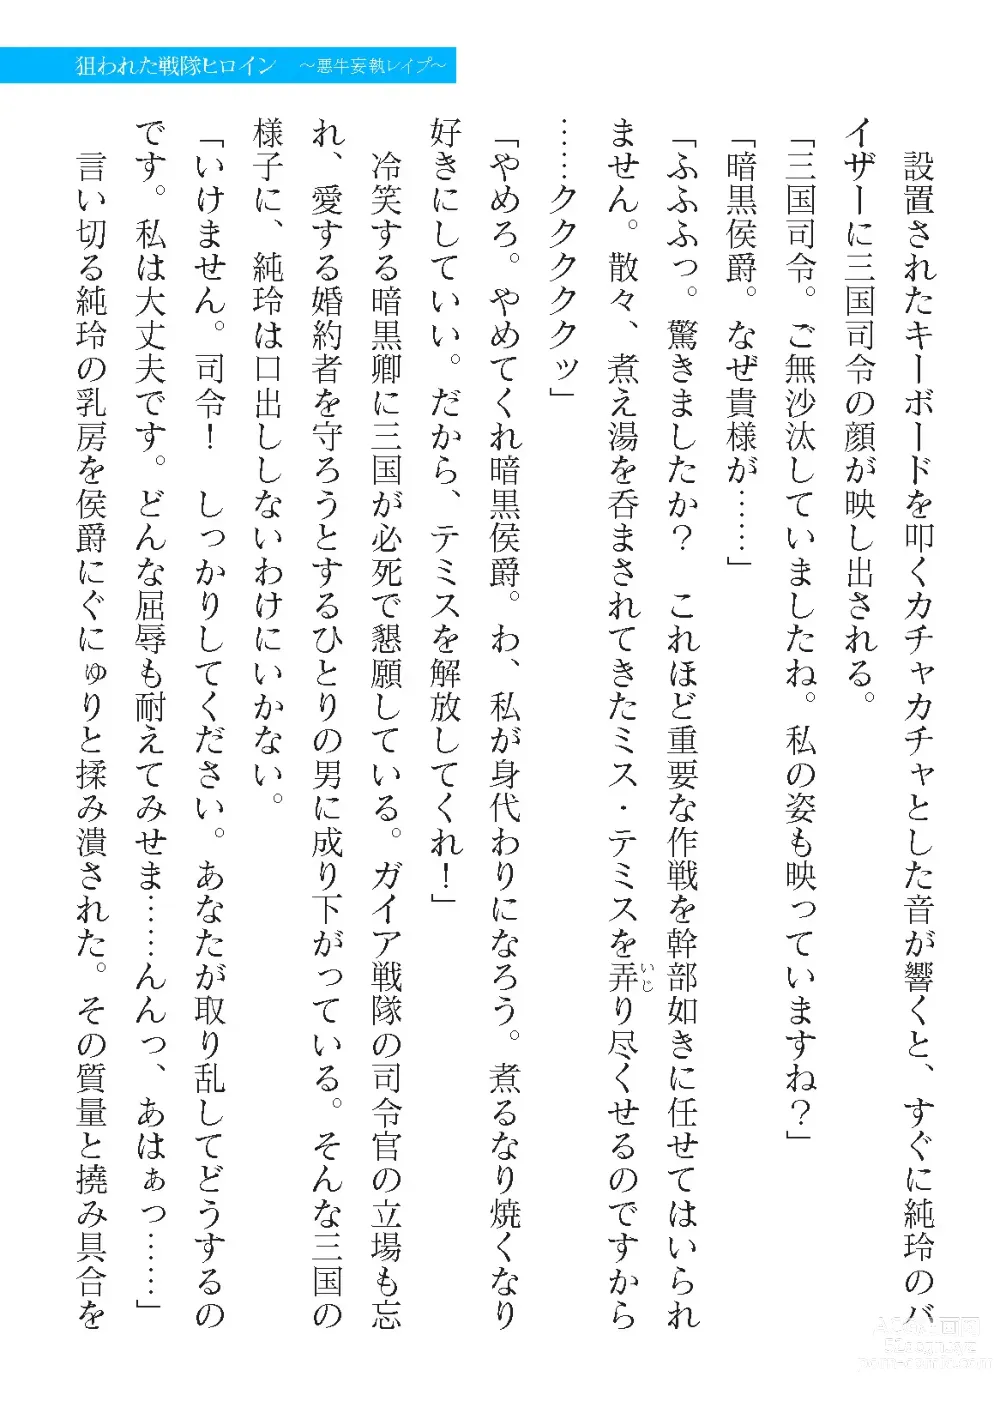 狙われた戦隊ヒロイン　〜悪牛妄執レイプ〜
　設置されたキーボードを叩くカチャカチャとした音が響くと、すぐに純玲のバ
イザーに三国司令の顔が映し出される。
「三国司令。ご無沙汰していましたね。私の姿も映っていますね？」
「暗黒侯爵。なぜ貴様が……」
「ふふふっ。驚きましたか？　これほど重要な作戦を幹部如きに任せてはいられ
ません。散々、煮え湯を呑まされてきたミス・テミスを弄り尽くせるのですから
いじ
……ククククッ」
「やめろ。やめてくれ暗黒侯爵。わ、私が身代わりになろう。煮るなり焼くなり
好きにしていい。だから、テミスを解放してくれ！」
　冷笑する暗黒卿に三国が必死で懇願している。ガイア戦隊の司令官の立場も忘
れ、愛する婚約者を守ろうとするひとりの男に成り下がっている。そんな三国の
様子に、純玲は口出ししないわけにいかない。
「いけません。司令！　しっかりしてください。あなたが取り乱してどうするの
です。私は大丈夫です。どんな屈辱も耐えてみせま……んんっ、あはぁっ……」
　言い切る純玲の乳房を侯爵にぐにゅりと揉み潰された。その質量と撓み具合を